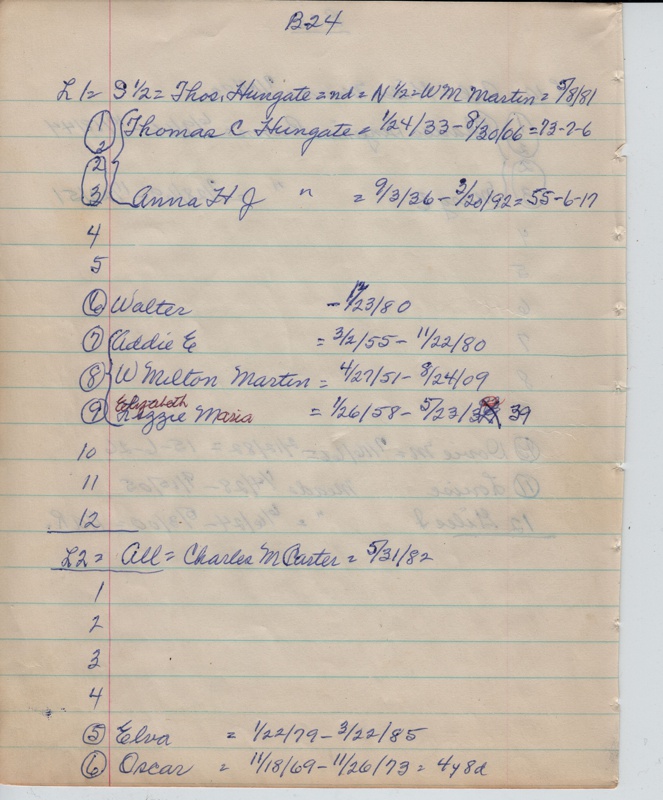 B24
L1 = S 1/2 = Thos. Hungate = nd = N 1/2 = W M Martin = 5/8/81
1 Thomas C Hungate = 1/24/33 - 8/30/06 = 73-7-6
2
2
3 Anna H J " = 9/3/36 - 3/20/92 = 55-6-17
4
5
6 Walter - 12/23/80
7 Addie E = 3/2/55 - 11/22/80
8 W Milton Martin = 4/27/51 - 8/24/09
Elizabeth
9 Lizzie Maria = 1/26/58 - 5/23/ 39
10
11
12
L2 = All = Charles M Carter = 5/31/82
1
2
3
4
5 Elva = 1/22/79 - 3/22/85
6 Oscar = 11/18/69 - 11/26/73 = 4y8d